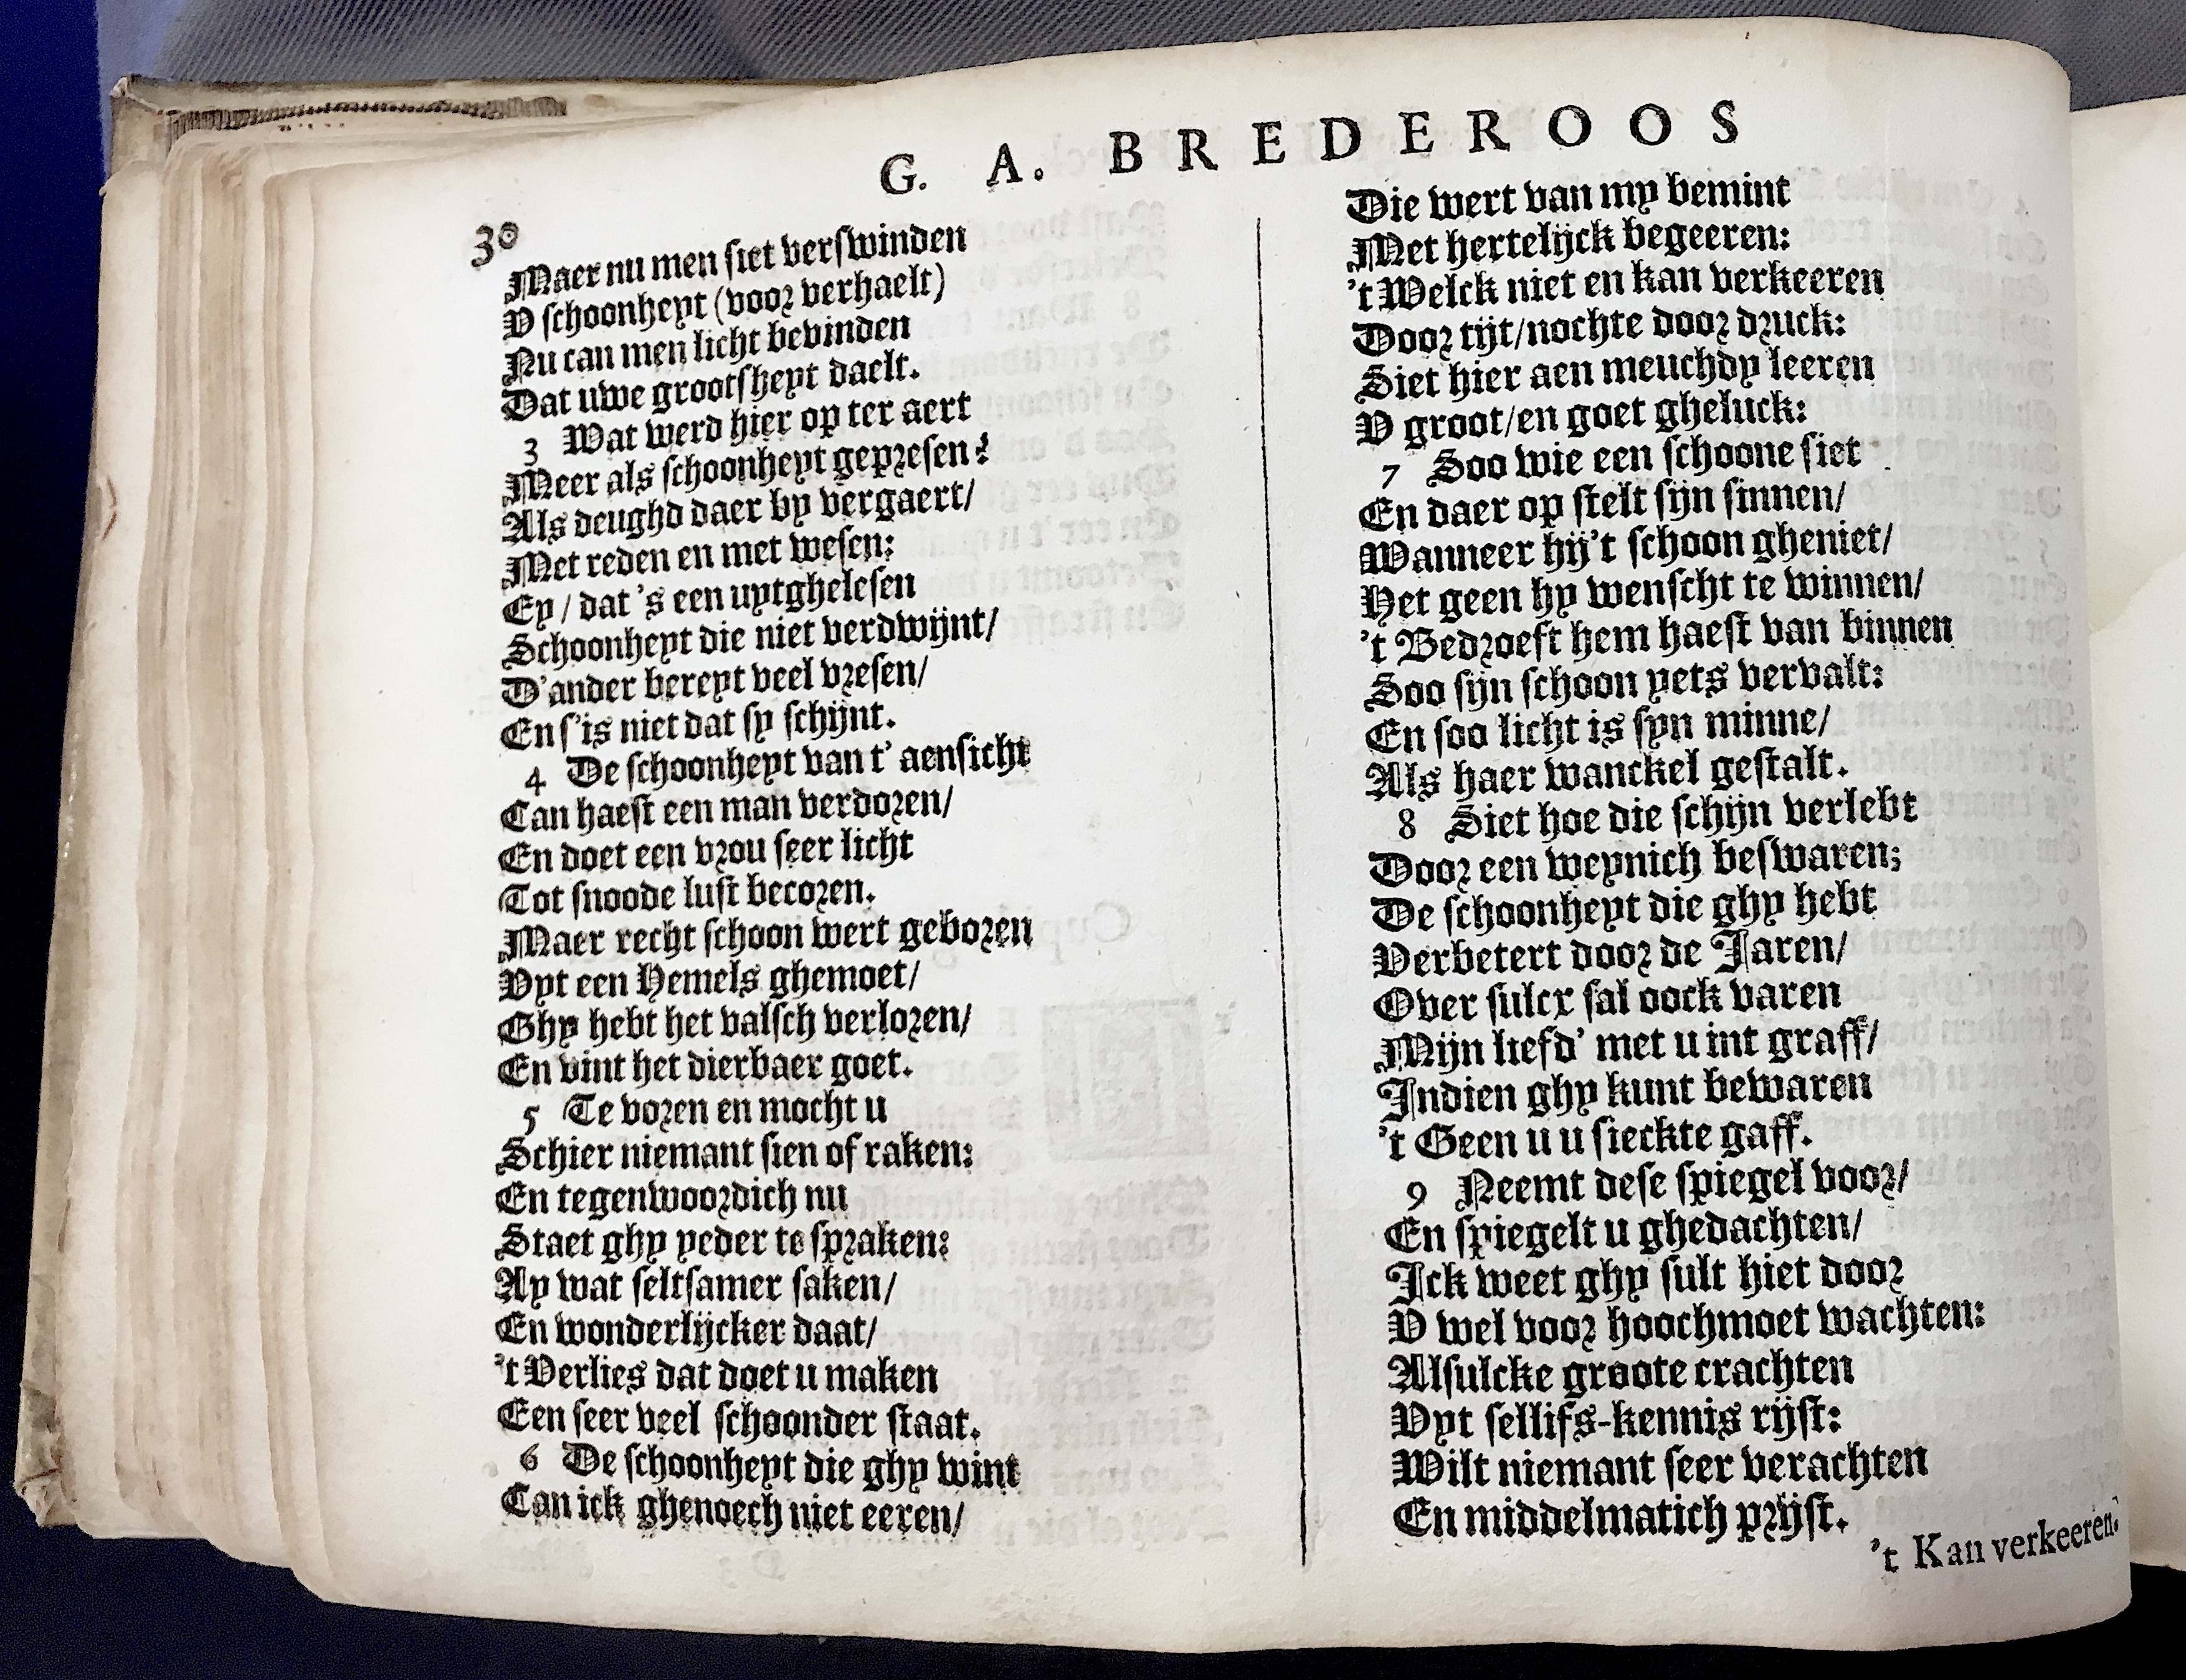 G. A. BREDEROOS
30
Maer nu men siet verswinden
V schoonheyt (voor verhaelt)
Nu can men licht bevinden
Dat uwe grootsheyt daelt.
3 Wat werd hier op ter aert
Meer als schoonheyt gepresen?
Als deughd daer by vergaert/
Met reden en met wesen:
Ey / dat 's een uytghelesen
Schoonheyt die niet verdwijnt/
D'ander bereyt veel vresen/
En s'is niet dat sy schijnt.
4 De schoonheyt van t' aensicht
Can haest een man verdoren/
En doet een vrou seer licht
Tot snoode lust becoren.
Maer recht schoon wert geboren
Vyt een Hemels ghemoet/
Ghy hebt het valsch verloren/
En vint het dierbaer goet.
5 Te voren en mocht u
Schier niemant sien of raken:
En tegenwoordich nu
Staet ghy yeder te spraken:
Ay wat seltsamer saken/
En wonderlijcker daat/
't Verlies dat doet u maken
Een seer veel schoonder staat.
6 De schoonheyt die ghy wint
Can ick ghenoech niet eeren/
Die wert van my bemint
Met hertelijck begeeren:
't Welck niet en kan verkeeren
Door tijt/nochte door druck:
Siet hier aen meuchdy leeren
V groot/en goet gheluck:
7 Soo wie een schoone siet
En daer op stelt sijn sinnen/
Wanneer hij't schoon gheniet/
Het geen hy wenscht te winnen/
't Bedroeft hem haest van binnen
Soo sijn schoon yets vervalt:
En soo licht is syn minne/
Als haer wanckel gestalt.
8 Siet hoe die schijn verlebt
Door een weynich beswaren;
De schoonheyt die ghy hebt
Verbetert door de Jaren/
Over sulcx sal oock varen
Mijn liefd' met u int graff/
Indien ghy kunt bewaren
't Geen u u sieckte gaff.
9 Neemt dese spiegel voor/
En spiegelt u ghedachten/
Ick weet ghy sult hiet door
V wel voor hoochmoet wachten:
Alsulcke groote crachten
Vyt sellifs-kennis rijst:
Wilt niemant seer verachten
En middelmatich prijst.
't Kan verkeeren.